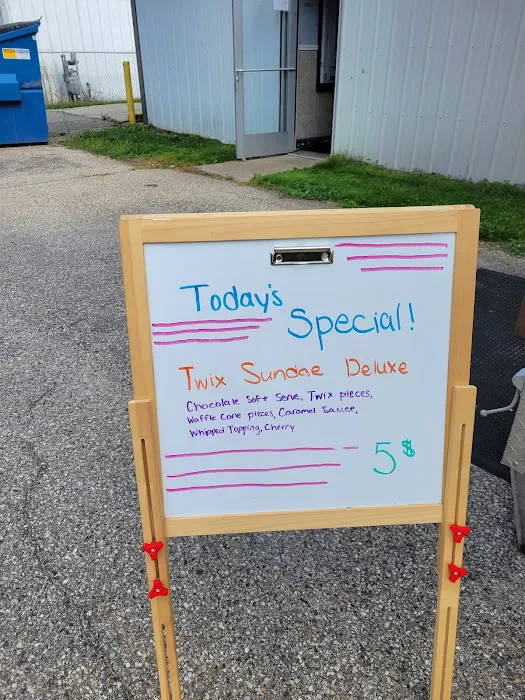 Today's
Special!
Twix Sundae Deluxe
Chocolate Soft Serve, Twix pieces,
Waffle Cone pieces, Caramel Sauce,
Whipped Topping, Cherry
5$